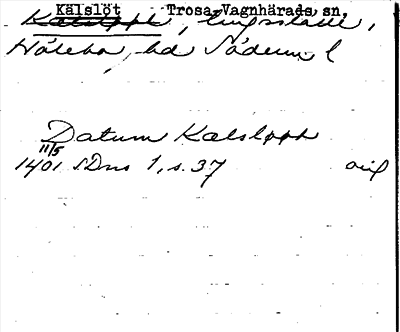 Kälslöt Trosa-Vagnhärads sn.
Kalslöph, tingsställe,
Hölebo, hd Söderm. l
Datum Kalslpph
11/5
1401 SDns 1, s. 37 orig